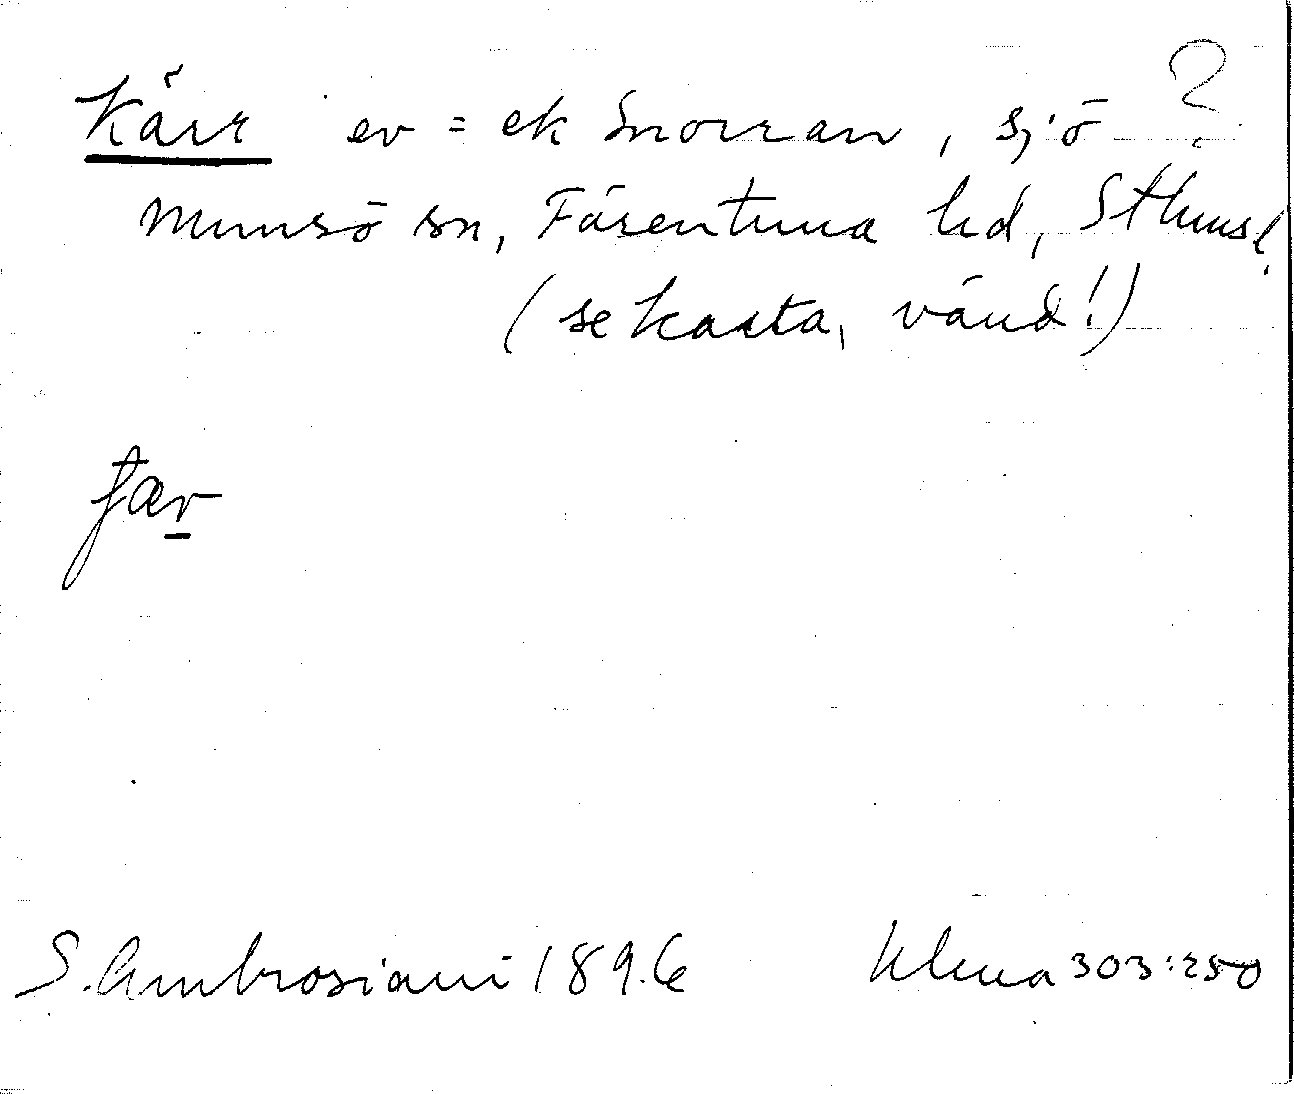 Kärr ev = ek Snorran, sjö ?
Munsö sn, Färentuna hd, Sthms l.
(se kasta, vänd!)
S. Ambrosiani 1896 Ulma 303:250